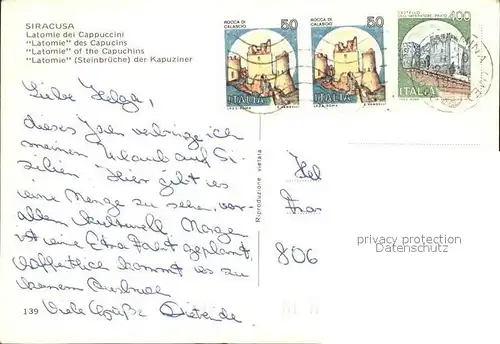 SIRACUSA
Latomie dei Cappuccini
"Latomie" des Capucins
"Latomie" of the Capuchins
"Latomie" (Steinbrüche) der Kapuziner
ROCCA DI CALASCIO
50
ITALIA
ROCCA DI CALASCIO
50
ITALIA
CASTELLO DELL'IMPERATORE · PRATO
400
ITALIA
Liebe Helga,
dieses Jahr verbringe ich
meinen Urlaub auf Si-
zilien. Hier gibt es
eine Menge zu sehen, vor
allem kulturell. Morgen
ist eine Etna Fahrt geplant,
hoffentlich kommt es zu
keinem Ausbruch
Viele Grüße
139
Riproduzione vietata
Hel
806
privacy protection
Datenschutz